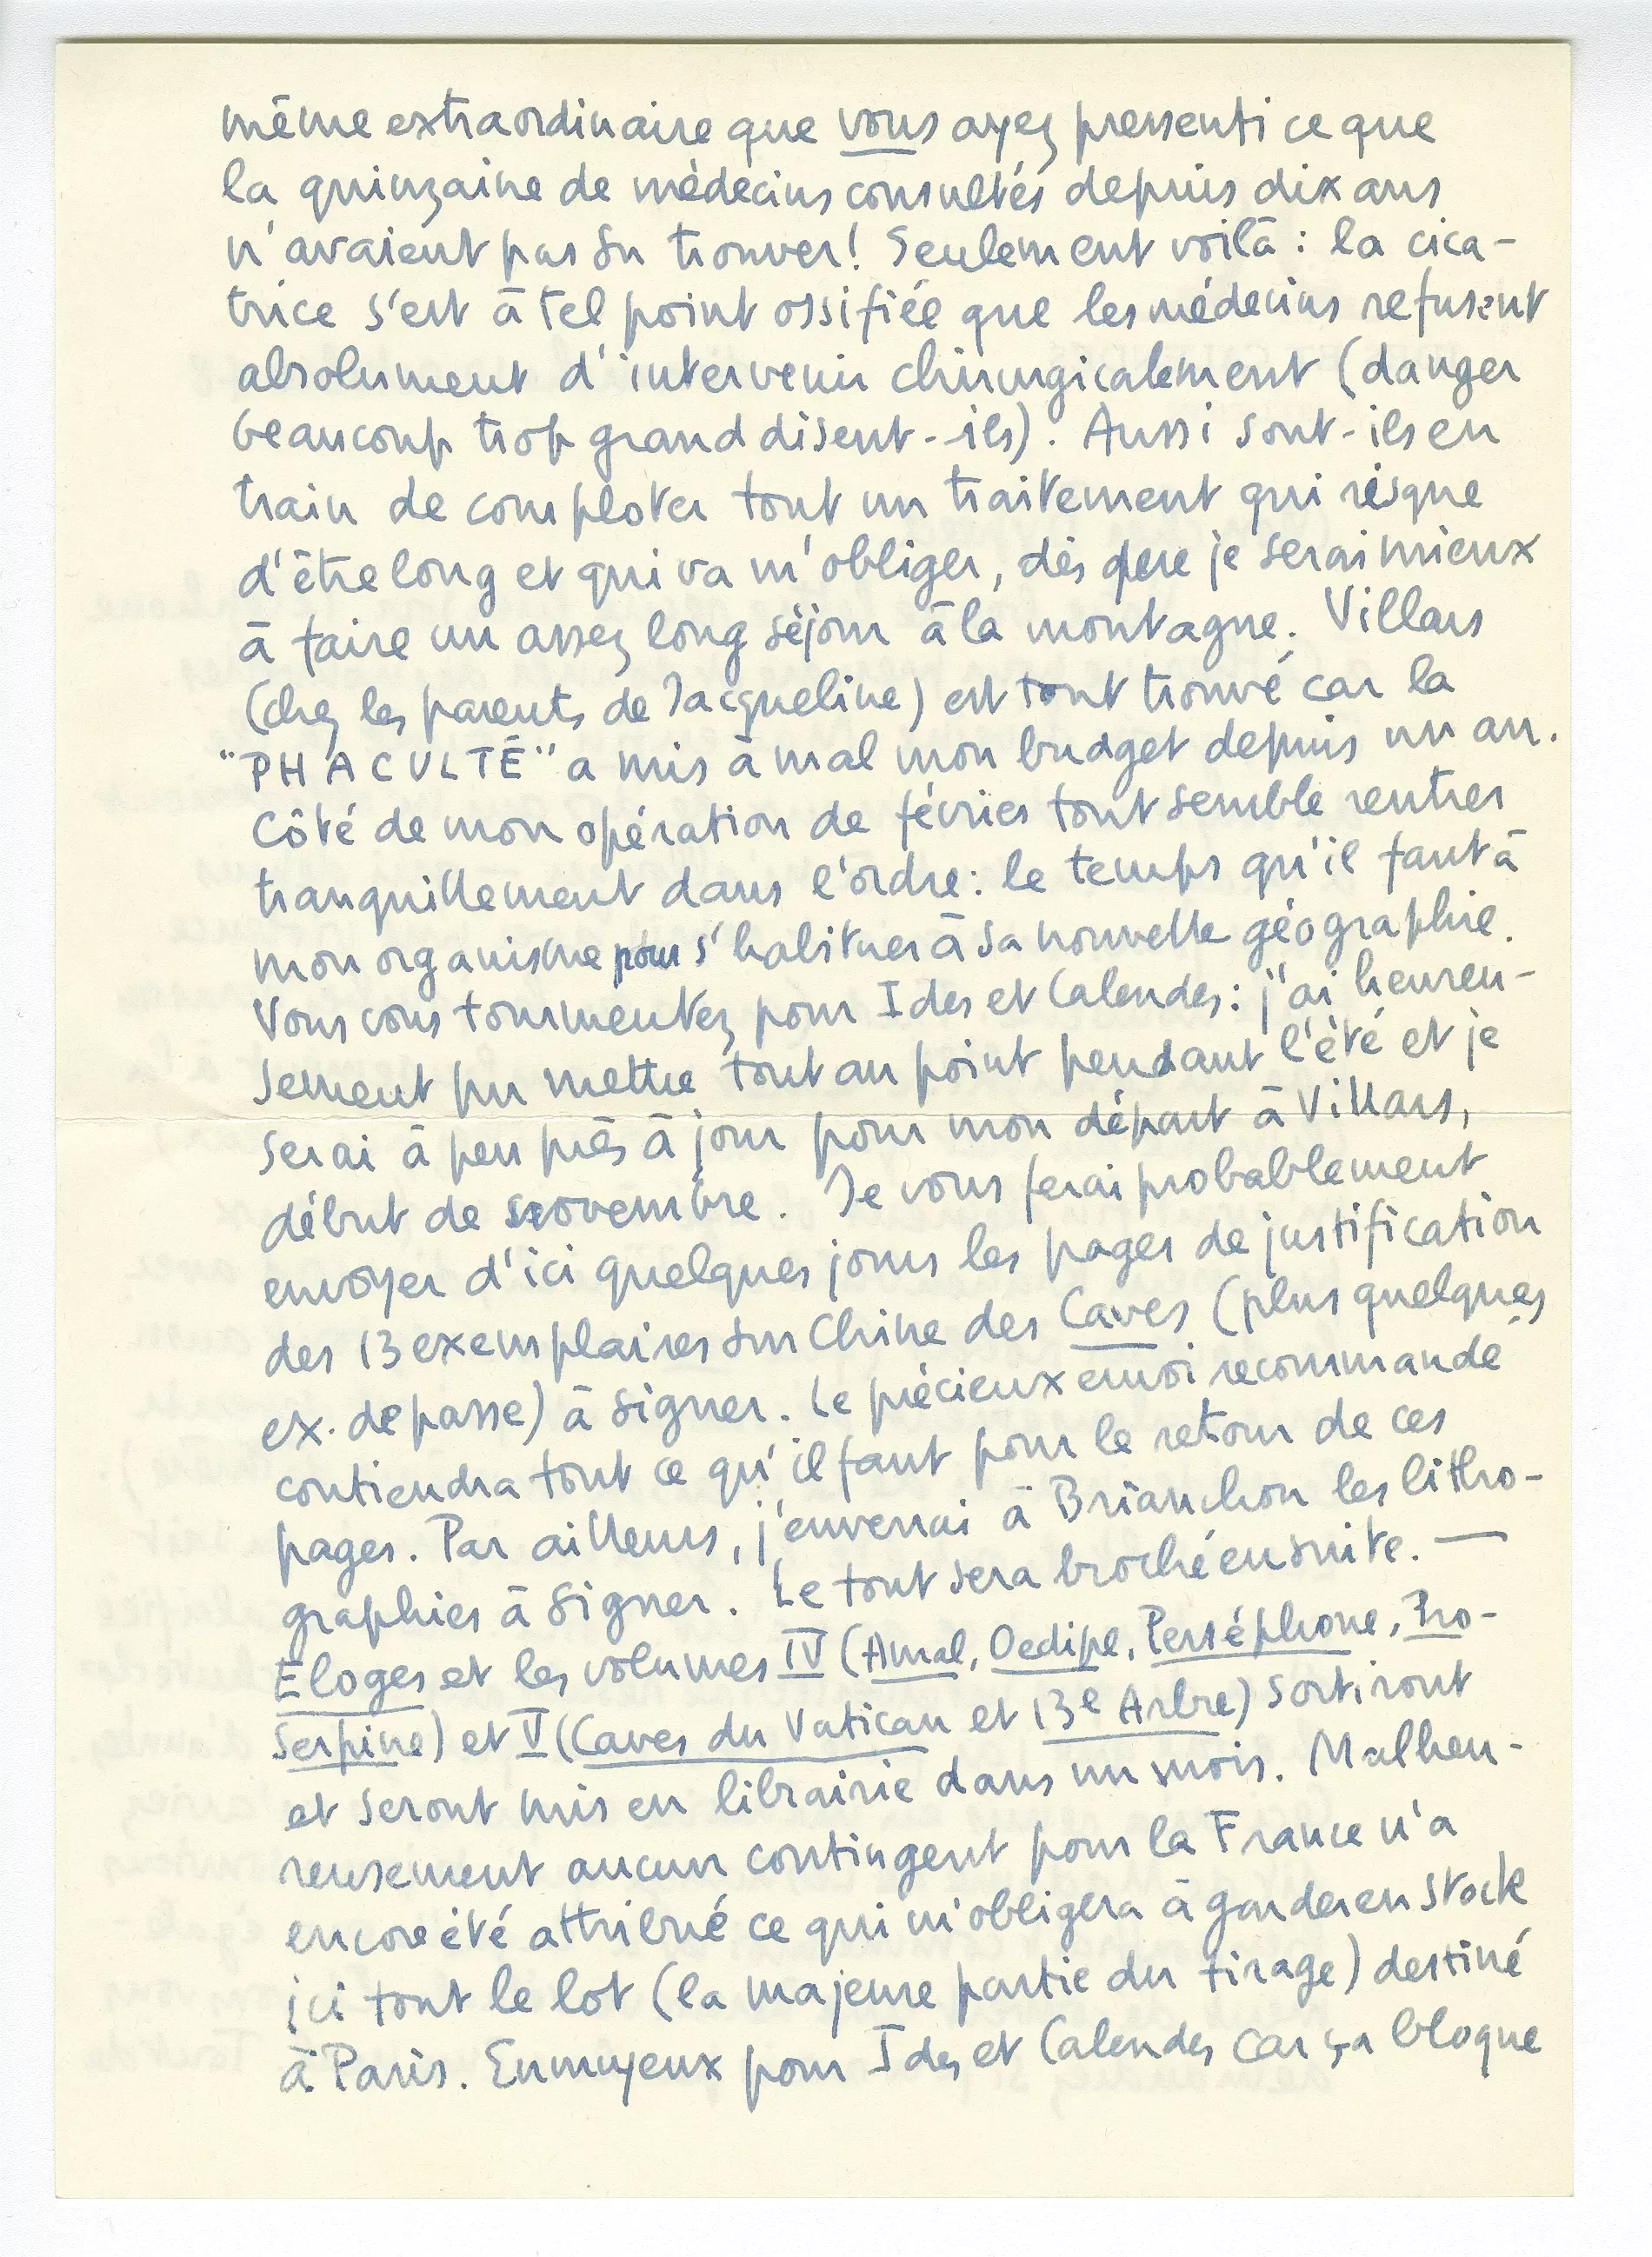 même extraordinaire que vous ayez pressenti ce que
la quinzaine de médecins consultés depuis dix ans
n'avaient pas su trouver! Seulement voilà : la cica-
trice s'est à tel point ossifiée que les médecins refusent
absolument d'intervenir chirurgicalement (danger
beaucoup trop grand disent-ils). Aussi sont-ils en
train de comploter tout un traitement qui risque
d'être long et qui va m'obliger, dès que je serai mieux
à faire un assez long séjour à la montagne. Villars
(chez les parents de Jacqueline) est tout trouvé car la
"PHACULTÉ" a mis à mal mon budget depuis un an.
Côté de mon opération de février tout semble rentrer
tranquillement dans l'ordre: le temps qu'il faut à
mon organisme pour s'habituer à sa nouvelle géographie.
Vous vous tourmentez pour Ides et Calendes: j'ai heureu-
sement pu mettre tout au point pendant l'été et je
serai à peu près à jour pour mon départ à Villars,
début de novembre. Je vous ferai probablement
envoyer d'ici quelques jours les pages de justification
des 13 exemplaires sur Chine des Caves (plus quelques
ex. de passe) à signer. Le précieux envoi recommandé
contiendra tout ce qu'il faut pour le retour de ces
pages. Par ailleurs, j'enverrai à Brianchon les litho-
graphies à signer. Le tout sera broché ensuite. —
Eloges et les volumes IV (Amal, Oedipe, Perséphone, Pro-
serpine) et V (Caves du Vatican et 13e Arbre) sortiront
et seront mis en librairie dans un mois. Malheu-
reusement aucun contingent pour la France n'a
encore été attribué ce qui m'obligera à garder en stock
ici tout le lot (la majeure partie du tirage) destiné
à Paris. Ennuyeux pour Ides et Calendes car ça bloque